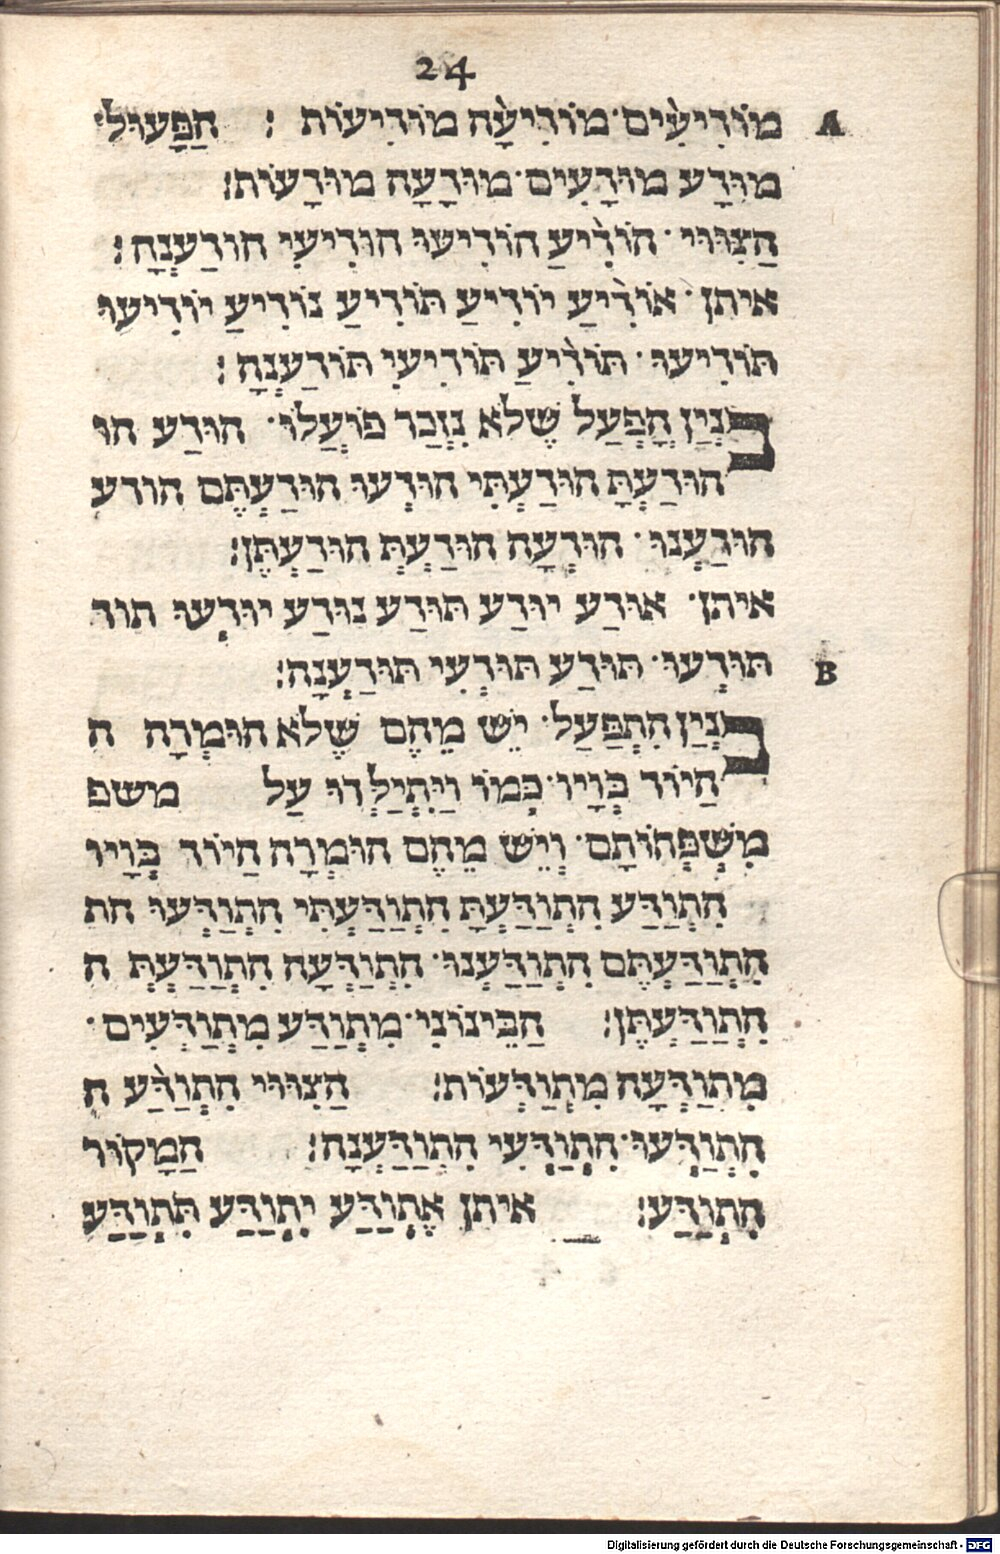 24
מוֹדִיעִים· מוֹדִיעָה מוֹדִיעוֹת : הַפָּעוּל A
מוּדָע מוּדָעִים· מוּדָעָה מוּדָעוֹת:
הַצִּוּוּי · הוֹדִיעַ הוֹדִיעוּ הוֹדִיעִי הוֹדַעְנָה:
איתן· אוֹדִיעַ יוֹדִיעַ תּוֹדִיעַ נוֹדִיעַ יוֹדִיעוּ
תּוֹדִיעוּ · תּוֹדִיעַ תּוֹדִיעִי תּוֹדַעְנָה:
בנְיַן הָפְעַל שֶׁלֹּא נִזְכַּר פּוֹעֲלוֹ· הוּדַע הו
הוּדַעְתָּ הוּדַעְתִּי הוּדְעוּ הוּדַעְתֶּם הודע
הוּדַעְנוּ · הוּדְעָה הוּדַעְתְּ הוּדַעְתֶּן:
איתן· אוּדַע יוּדַע תּוּדַע נוּדַע יוּדְעוּ תוד
תּוּדְעוּ· תּוּדַע תּוּדְעִי תּוּדַעְנָה: B
בנְיַן הִתְפַּעַל· יֵשׁ מֵהֶם שֶׁלֹּא הוּמְרָה ה
הַיּוֹד בְּוָיו· כְּמוֹ וַיִּתְיַלְּדוּ עַל משפ
מִשְׁפְּחוֹתָם· וְיֵשׁ מֵהֶם הוּמְרָה הַיּוֹד בְּוָיו
הִתְוַדַּע הִתְוַדַּעְתָּ הִתְוַדַּעְתִּי הִתְוַדְּעוּ הת
הִתְוַדַּעְתֶּם הִתְוַדַּעְנוּ· הִתְוַדְּעָה הִתְוַדַּעְתְּ ה
הִתְוַדַּעְתֶּן: הַבֵּינוֹנִי· מִתְוַדַּע מִתְוַדְּעִים·
מִתְוַדְּעָה מִתְוַדְּעוֹת: הַצִּוּוּי הִתְוַדַּע ה
הִתְוַדְּעוּ· הִתְוַדְּעִי הִתְוַדַּעְנָה: הַמָּקוֹר
הִתְוַדַּע: איתן אֶתְוַדַּע יִתְוַדַּע תִּתְוַדַּע
Digitalisierung gefördert durch die Deutsche Forschungsgemeinschaft - DFG